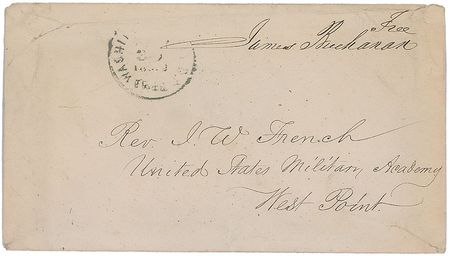 Free
James Buchanan
WASHI
Rev. J. W. French
United States Military Academy
West Point.